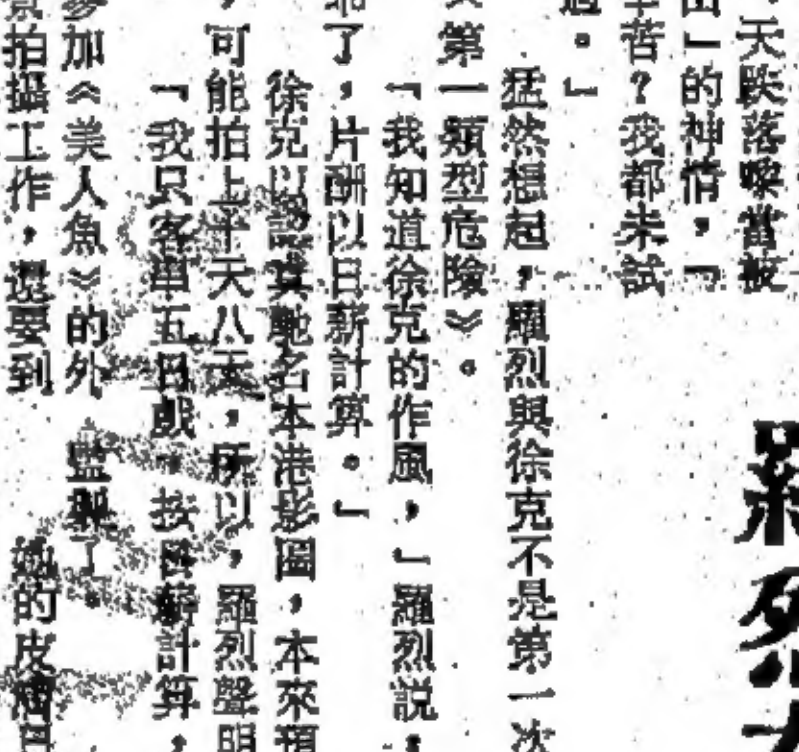 天跌落嚟當被
」的神情,「
苦?我都未試
過。」
猛然想起,羅烈與徐克不是第一次
第一類型危險》。
「我知道徐克的作風,」羅烈説,
了,片酬以日薪計算。」
徐克以認真馳名本港影圈,本來預
,可能拍上十天八天,所以,羅烈聲明
「我只客串五日戲,按日薪計算,
參加《美人魚》的外
了。
景拍攝工作,還要到
的皮
羅烈